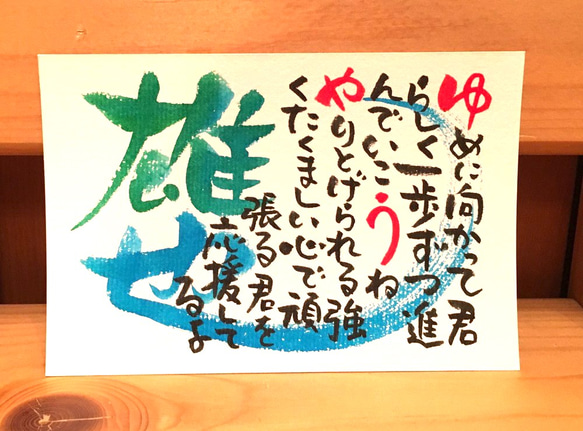 ゆめに向かって君
らしく一歩ずつ進
んでいこうね
やりとげられる強
くたくましい心で頑
張る君を
応援して
るよ
雄也